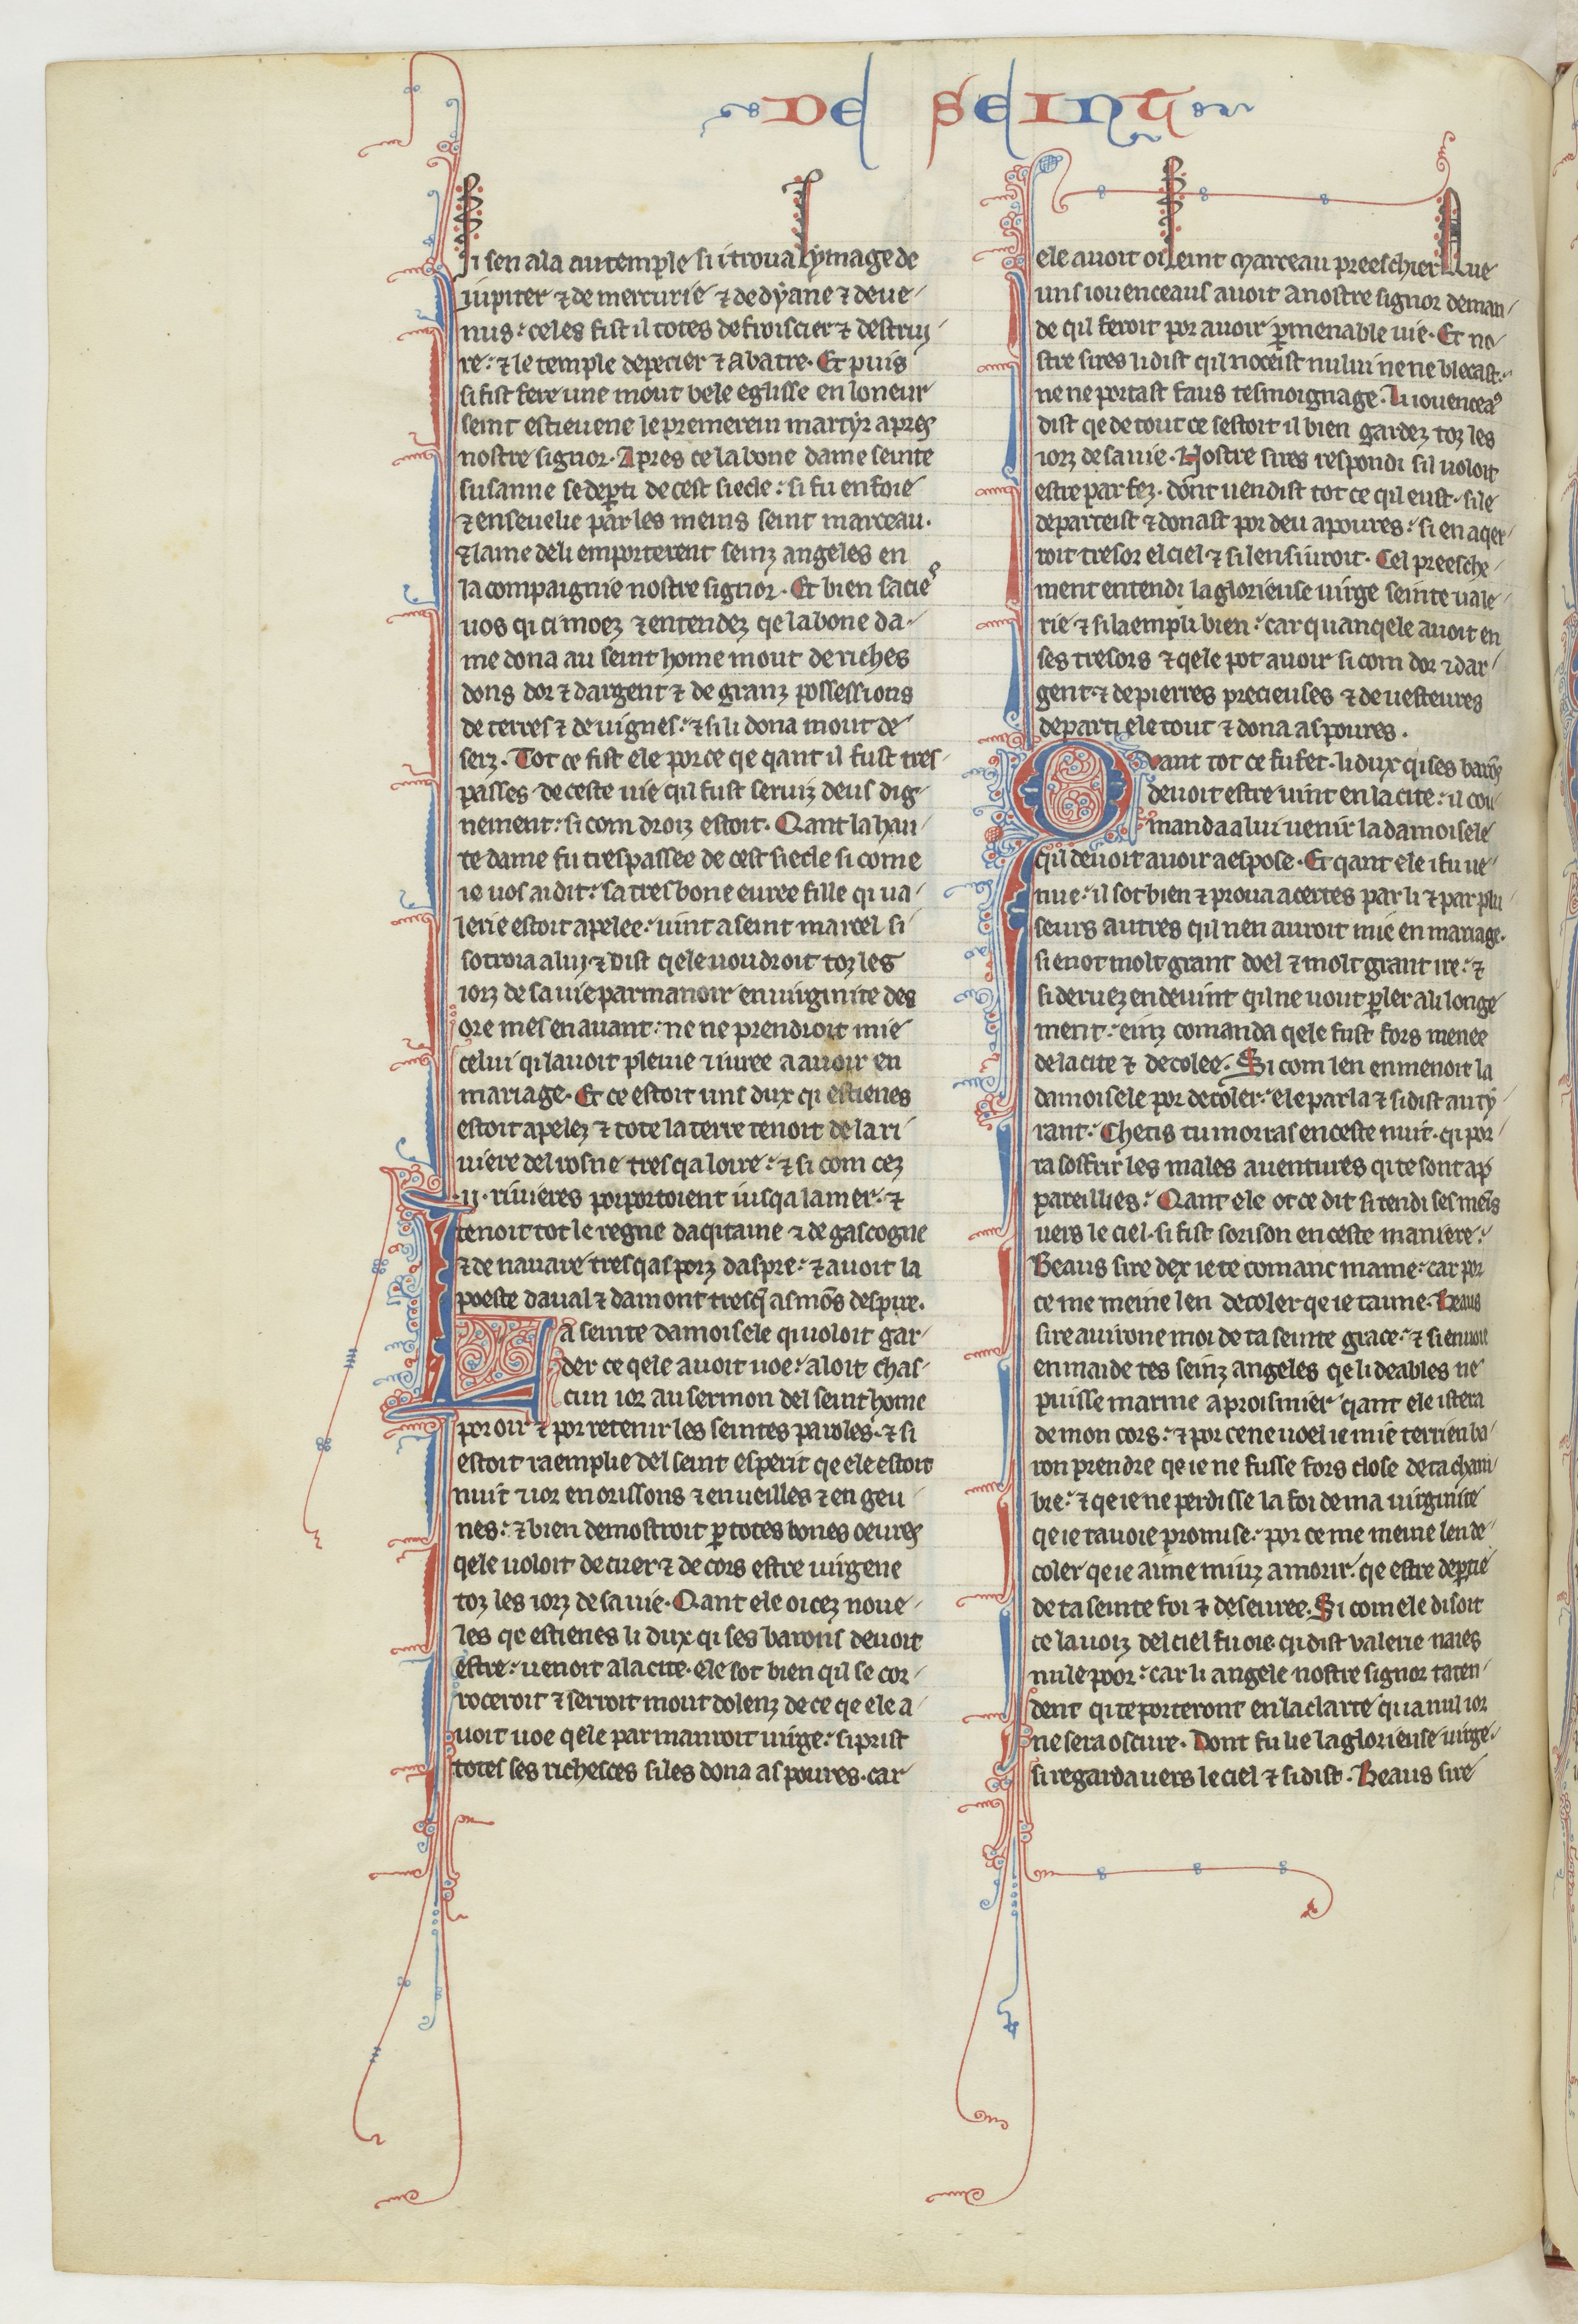 DE SEINT
Si sen ala au temple si i troua lymage de
iupiter ⁊ de mercurie ⁊ de dyane ⁊ de ue-
nus: celes fist il totes defroiscier ⁊ destruy
re: ⁊ le temple depecier ⁊ abatre. Et puis
si fist fere une mout bele eglisse en loneur
seint estieuene le premerein martyr apres
nostre signor. Apres ce la bone dame seinte
susanne se dep̱ti de cest siecle: si fu enfoie
⁊ enseuelie par les meins seint marceau.
⁊ lame de li emporterent seinz angeles en
la compaignie nostre signor. Et bien sacie⁹
uos qi ci moez ⁊ entendez qe la bone da-
me dona au seint home mout de riches
dons dor ⁊ dargent ⁊ de granz possessions
de terres ⁊ de uignes: ⁊ si li dona mout de
serz. Tot ce fist ele por ce qe qant il fust tres-
passes de ceste uie qil fust seruiz deus dig-
nement: si com droiz estoit. Qant la hau-
te dame fu trespassee de cest siecle si come
ie uos ai dit: sa tres bone euree fille qi ua-
lerie estoit apelee: uint a seint marcel si
sotroia a luy ⁊ dist qele uoudroit toz les
iorz de sa uie parmanoir en uirginite des
ore mes en auant: ne ne prendroit mie
celui qi lauoit pleuie ⁊ iuree a auoir en
mariage. Et ce estoit uns dux qi estienes
estoit apelez ⁊ tote la terre tenoit de la ri-
uiere del rosne tres qa loire: ⁊ si com cez
.ij. riuieres porportoient iusqa la mer: ⁊
tenoit tot le regne daqitaine ⁊ de gascogne
⁊ de nauare tres qas porz daspre: ⁊ auoit la
poeste daual ⁊ damont tresq̄ as mōs despire.
La seinte damoisele qi uoloit gar-
der ce qele auoit uoe: aloit chas-
cun ior au sermon del seint home
por oir ⁊ por retenir les seintes paroles. ⁊ si
estoit raemplie del seint esperit qe ele estoit
nuit ⁊ ior en orissons ⁊ en ueilles ⁊ en geu-
nes: ⁊ bien demostroit p̱ totes bones oeures
qele uoloit de cuer ⁊ de cors estre uirgene
toz les iorz de sa uie. Qant ele oi cez noue-
les qe estienes li dux qi ses barons deuoit
estre: uenoit a la cite. ele sot bien qil se cor-
roceroit ⁊ serroit mout dolenz de ce qe ele a-
uoit uoe qele parmanroit uirge: si prist
totes ses richesces si les dona as poures. car
ele auoit oi seint marceau preeschier Que
uns iouenceaus auoit a nostre signor deman-
de qil feroit por auoir p̱menable uie. Et no-
stre sires li dist qil noceist nului ne ne blecast:
ne ne portast faus tesmoignage. Li iouencea⁹
dist qe de tout ce sestoit il bien gardez toz les
iorz de sa uie. Nostre sires respondi sil uoloit
estre parfez. dont uendist tot ce qil eust. si le
departeist ⁊ donast por deu a poures: si en aqer-
roit tresor el ciel ⁊ si len siuroit. Cel preesche-
ment entendi la glorieuse uirge seinte uale-
rie ⁊ si laempli bien: car quanqele auoit en
ses tresors ⁊ qele pot auoir si com dor ⁊ dar-
gent ⁊ de pierres precieuses ⁊ de uesteures
departi ele tout ⁊ dona as poures.
Qvant tot ce fu fet. li dux qi ses barōs
deuoit estre uint en la cite: il co-
manda a lui uenir la damoisele
qil deuoit auoir a espose. Et qant ele i fu ue-
nue: il sot bien ⁊ proua a certes par li ⁊ par plu-
seurs autres qil nen auroit mie en mariage.
si en ot molt grant doel ⁊ molt grant ire: ⁊
si deruez en deuint qil ne uout p̱ler a li longe-
ment: einz comanda qele fust fors menee
de la cite ⁊ decolee. Si com len en menoit la
damoisele por decoler: ele parla ⁊ si dist au ty-
rant. Chetis tu morras en ceste nuit. qi por-
ra soffrir les males auentures qi te sont ap-
pareillies: Qant ele ot ce dit si tendi ses meīs
uers le ciel. si fist sorison en ceste maniere:
Beaus sire dex ie te comanc mame: car por
ce me meine len decoler qe ie taime. Beaus
sire auirone moi de ta seinte grace: ⁊ si enuoie
en maide tes seinz angeles qe li deables ne
puisse marme aproismier qant ele istera
de mon cors: ⁊ por ce ne uoel ie mie terrien ba-
ron prendre qe ie ne fusse fors close de ta cham-
bre: ⁊ qe ie ne perdisse la foi de ma uirginite
qe ie tauoie promise: por ce me meine len de-
coler qe ie aime miuz a morir. qe estre dep̱tie
de ta seinte foi ⁊ deseuree. Si com ele disoit
ce la uoiz del ciel fu oie qi dist valerie naies
nule poor: car li angele nostre signor taten-
dent qi te porteront en la clarte qua nul ior
ne sera oscure. Dont fu lie la glorieuse uirge.
si regarda uers le ciel ⁊ si dist. Beaus sire